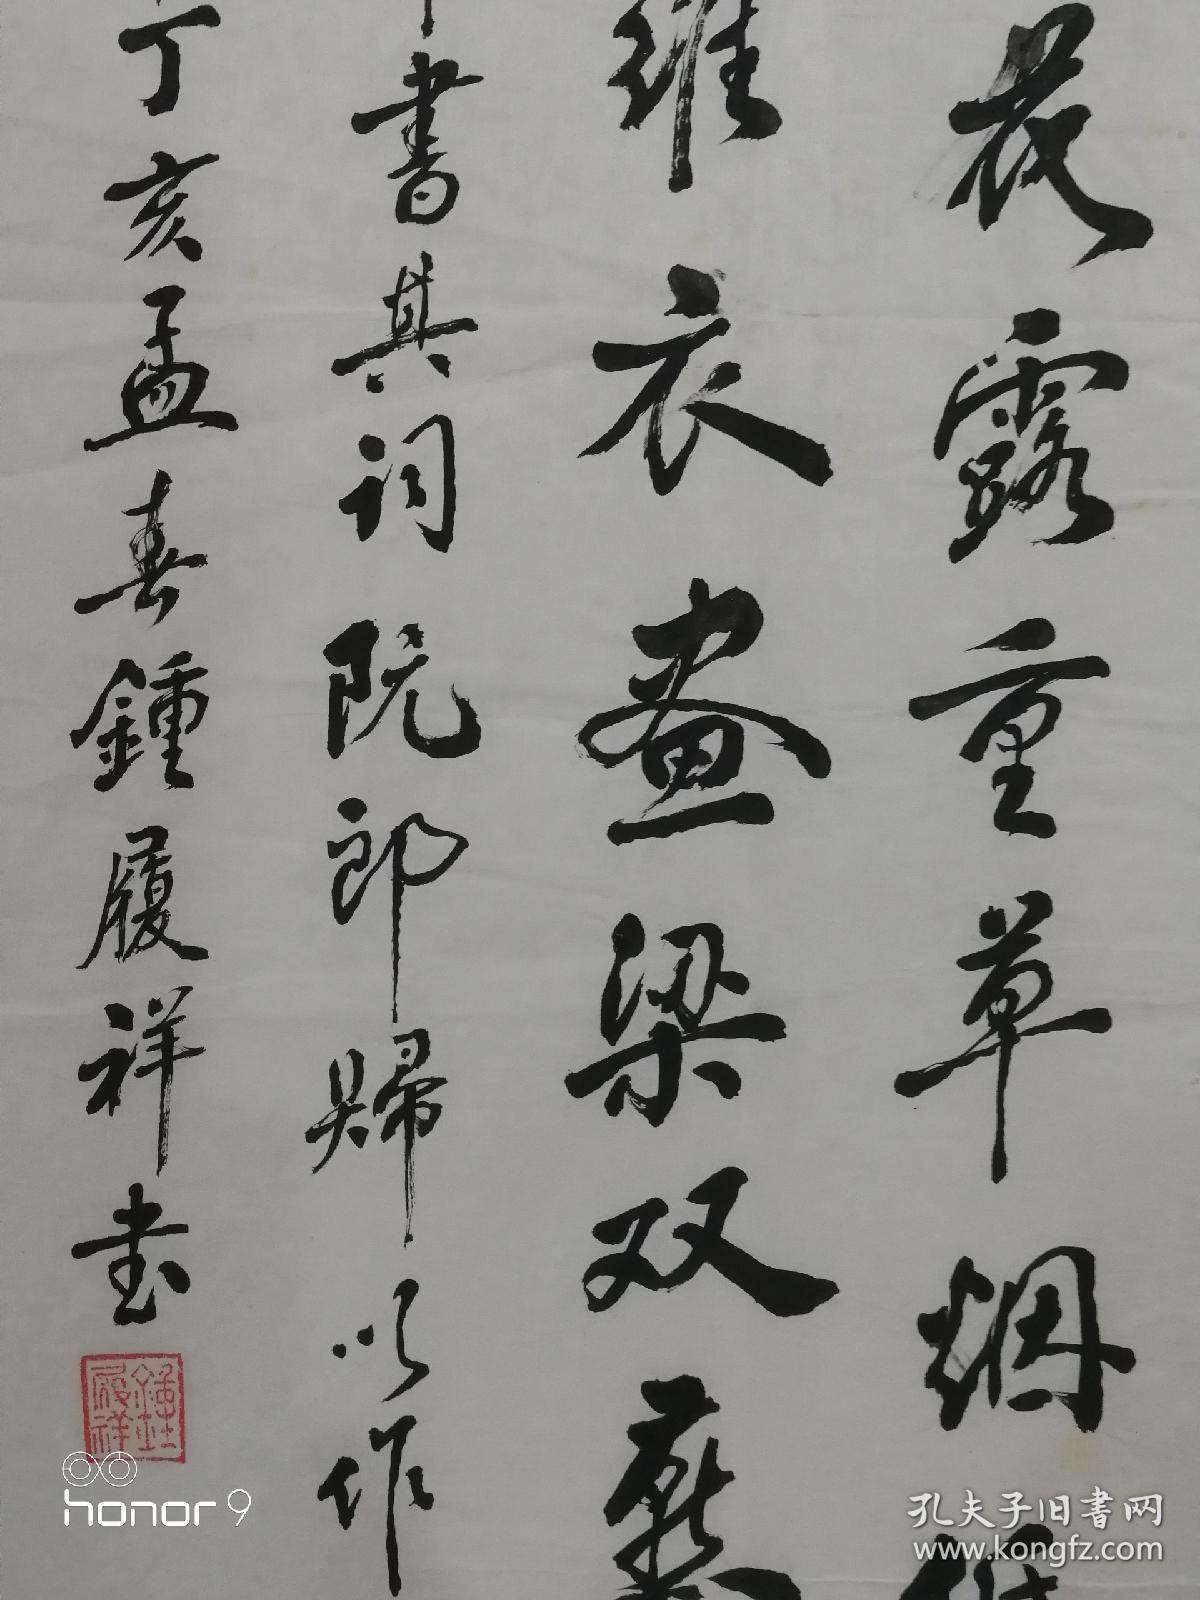 花露重草烟
羅衣畫梁双燕
書其詞阮郎歸以作
丁亥孟春鍾履祥書
鍾履祥
honor 9
孔夫子旧书网
www.kongfz.com